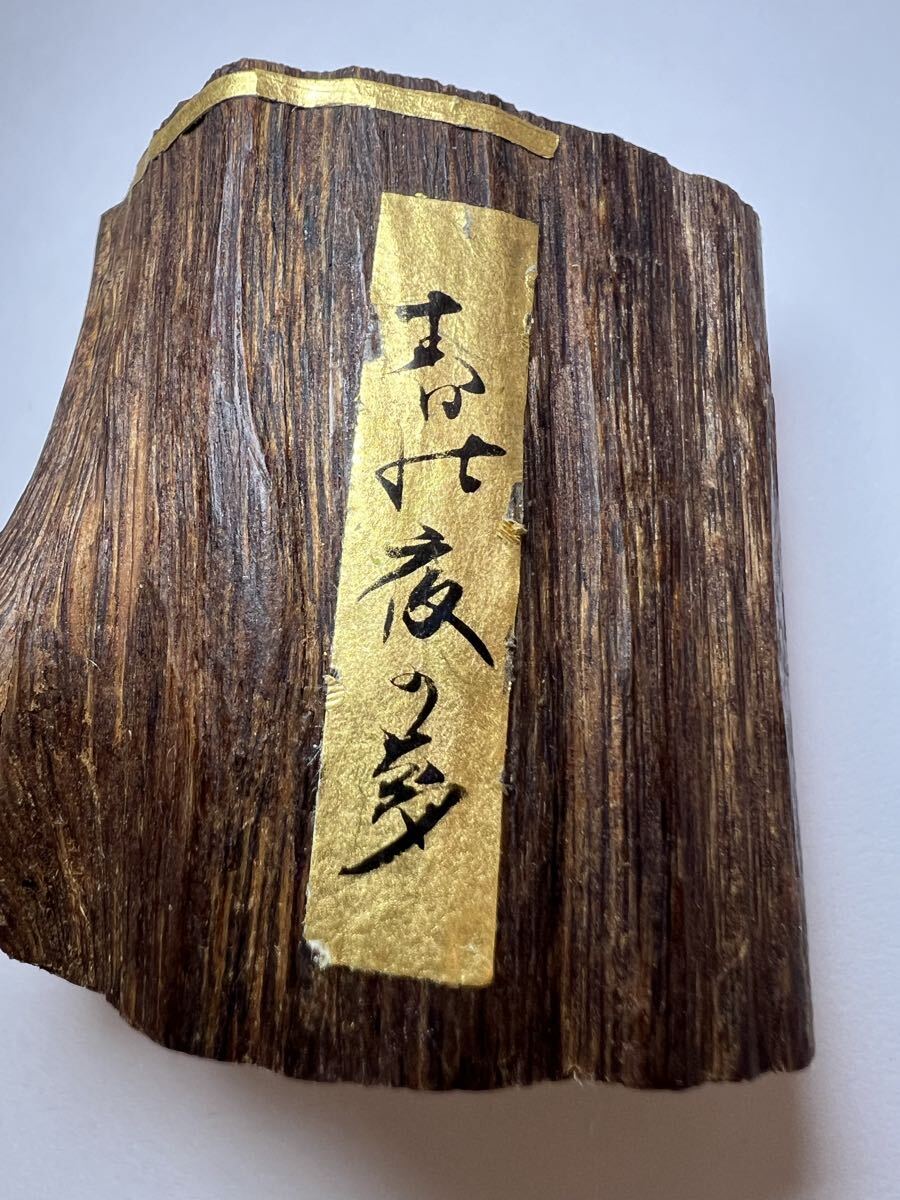 春能夜の夢